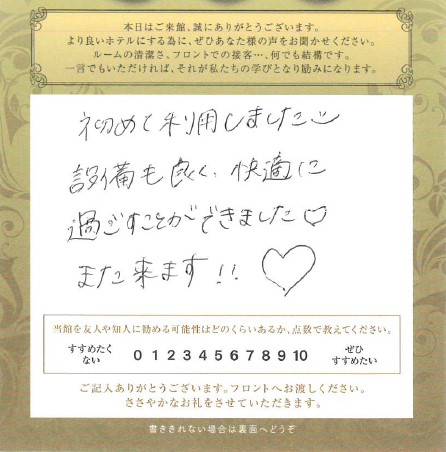 本日はご来館、誠にありがとうございます。
より良いホテルにする為に、ぜひあなた様の声をお聞かせください。
ルームの清潔さ、フロントでの接客…、何でも結構です。
一言でもいただければ、それが私たちの学びとなり励みになります。
初めて利用しました
設備も良く、快適に
過ごすことができました♡
また来ます!! ♡
当館を友人や知人に勧める可能性はどのくらいあるか、点数で教えてください。
すすめたく
ない
0 1 2 3 4 5 6 7 8 9 10
ぜひ
すすめたい
ご記入ありがとうございます。フロントへお渡しください。
ささやかなお礼をさせていただきます。
書ききれない場合は裏面へどうぞ